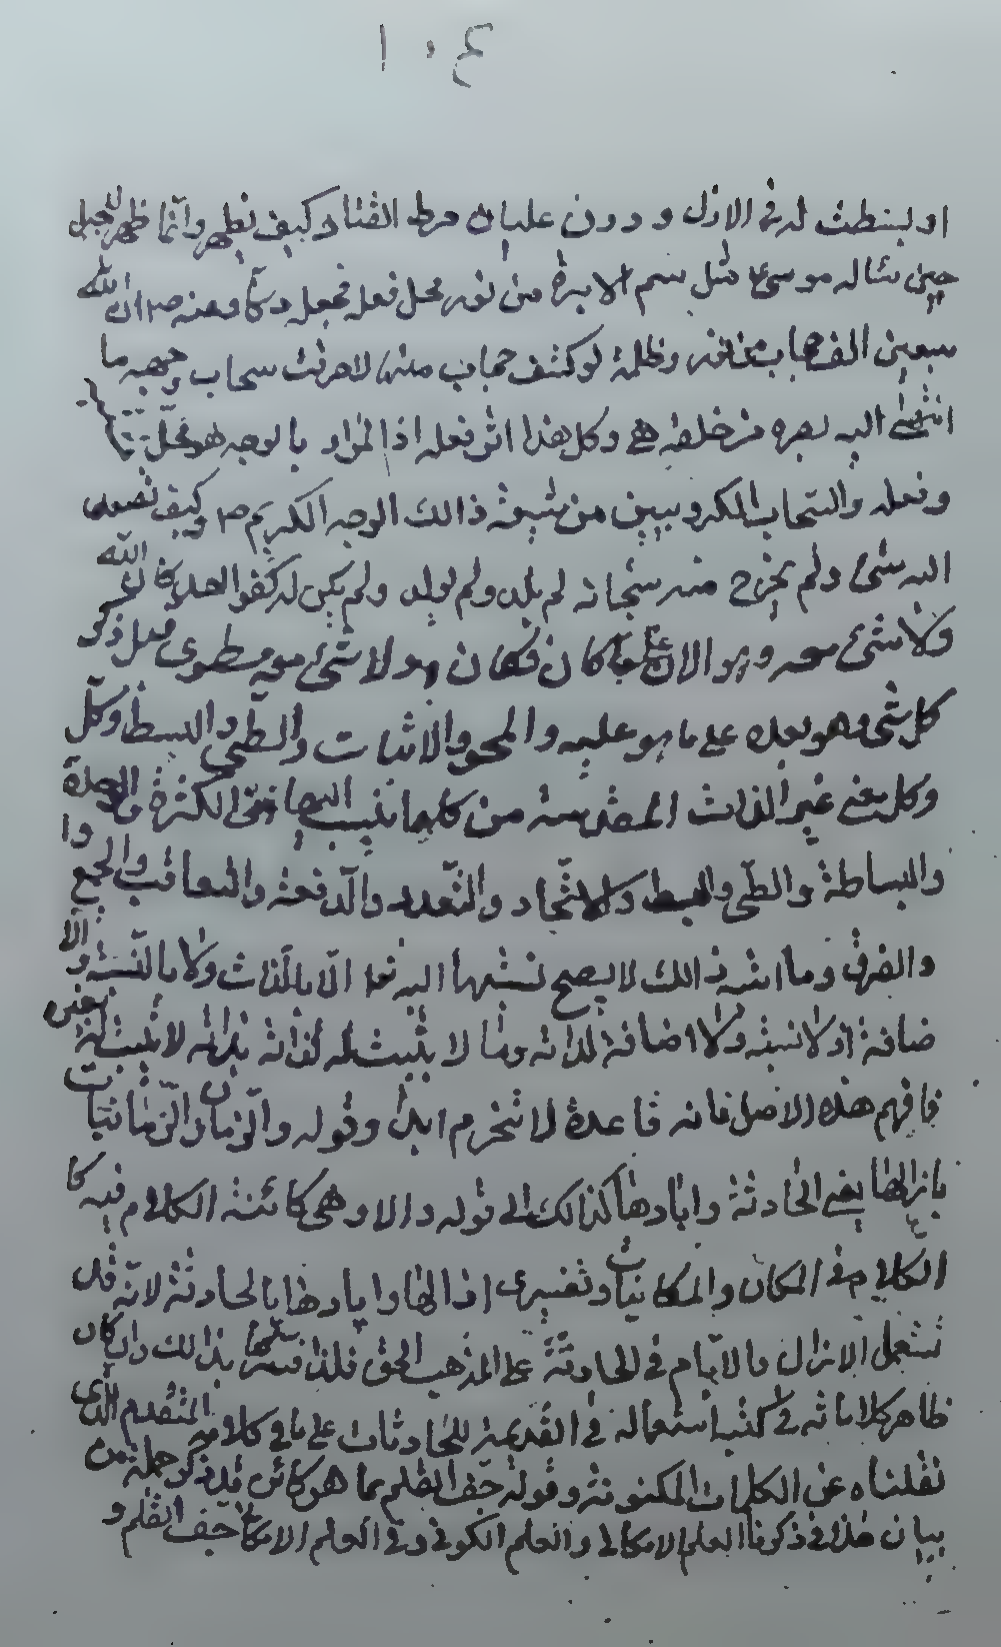 ١٠٤
او ينبطت له في الازل و دون عليان خرط القتاد كيف يظهر وانما ظهر للجبل
حين سئاله موسىع مثل سم الابرة من نور محل فعله فجعله دكا وعنه ص ان لله
سبعين الف حجاب من نور وظلمة لو كشف حجاب منها لاحرقت سحاب وجهه ما
انتهى اليه بصره من خلقه هي وكل هذا اثر فعله اذا المراد بالوجه هو محل
وفعله والسحاب الكروبيين من شيعة ذالك الوجه الكريم ص وكيف تصعد
اليه شئ ولم يخرج منه سبحانه لم يلد ولم يولد ولم يكن له كفوا احد كان الله
ولا شئ معه وهو الان على ما كان فكان هو لا شئ معه مطوى قبل ذكر
كل شئ وهو بعده على ما هو عليه والمحو والاثبات والطى والبسط وكل
وكل يعنى غير الذات المقدسة من كلما ينسب اليها فتى الكثرة والوحدة
والبساطة والطى والبسط والاتحاد والتعدد والدفعة والتعاقب والجمع وا
والفرق وما اشبه ذالك لا يصح نسبتها اليه تعا الا بالذات ولا بالنسبة والا
ضافة اذ لا نسبة ولا اضافة لذاته وما لا يثبت له لذاته بذاته لا يثبت لغيره
فافهم هذه الاصل فانه قاعدة لا تنخرم ابدا وقوله والزمان والزمانيات
بازالها يعنى الحادثة وابادها كذالك الى قوله والا وهى كائنة الكلام فيه كا
الكلام في المكان والمكانيات وتفسيرى ازالها وابادها بالحادثة لانه قد
تستعمل الازال والاباد في الحادثة على المذهب الحق فلذا فسرتها بذالك وان كان
ظاهر كلاماته في كتبه استعماله في القديمة للحادثات على ما في كلامه المتقدم الذى
نقلناه عن الكلمات المكنونة وقوله جف القلم بما هو كائن قد ذكر جملة من
بيان هذا في ذكرنا العلم الامكانى والعلم الكونى وفي العلم الامكانى جف القلم و